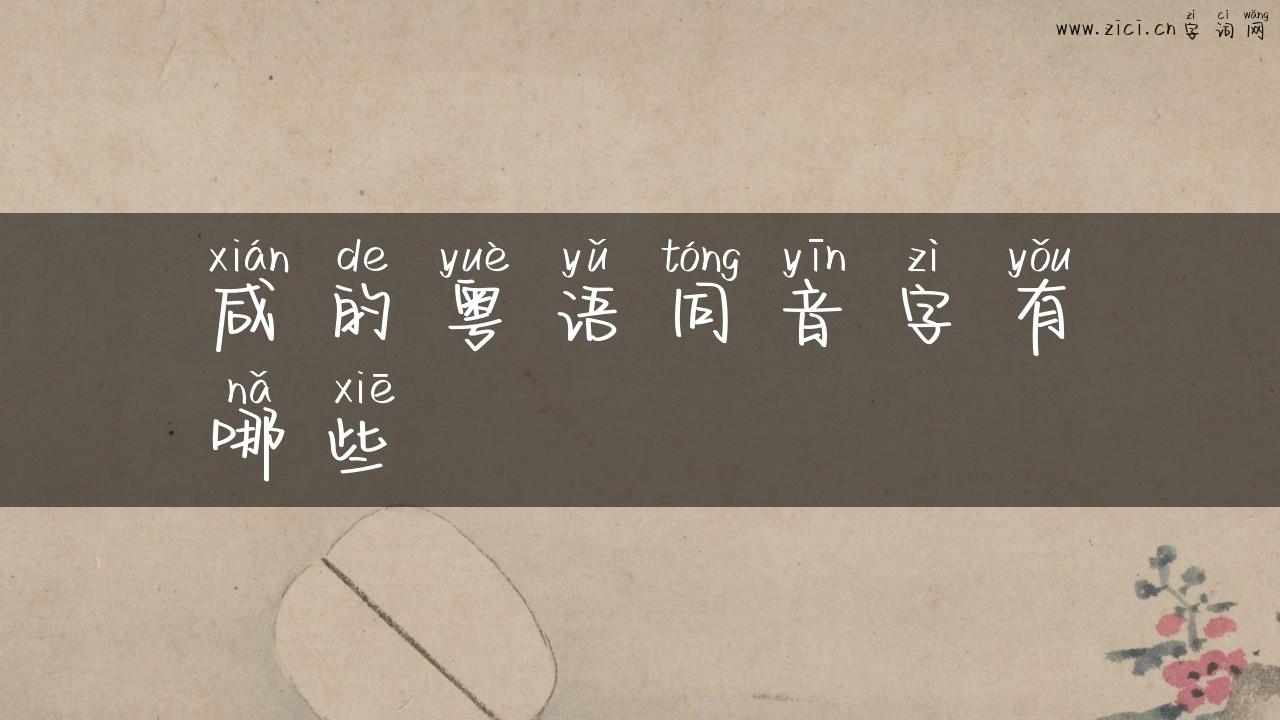 zì cí wǎng
www.zici.cn 字词网
xián de yuè yǔ tóng yīn zì yǒu
咸的粤语同音字有
nǎ xiē
哪些